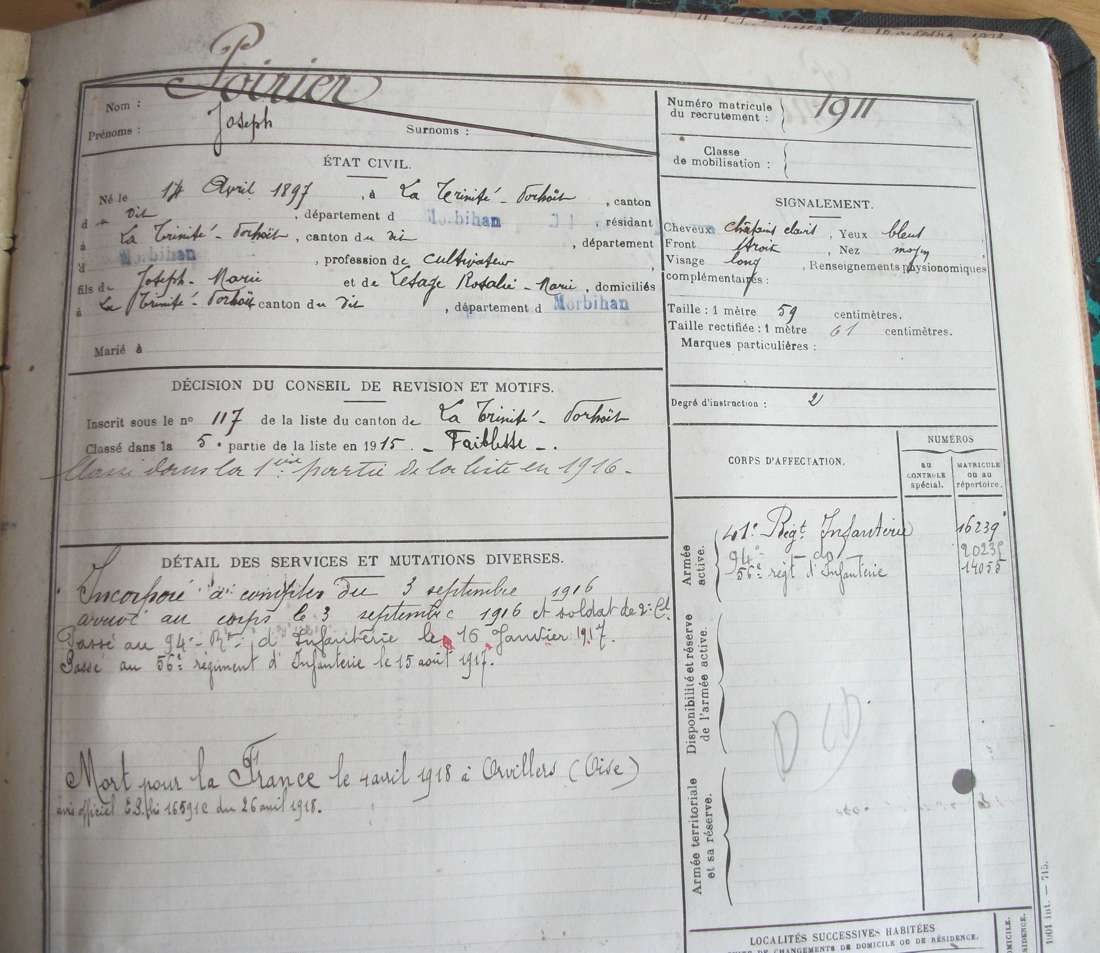 Poirier
Nom :
Prénoms : Joseph Surnoms :
ÉTAT CIVIL.
Né le 14 Avril 1897, à La Trinité-Porhoët, canton
d u dit, département d Morbihan, résidant
à La Trinité-Porhoët, canton du dit, département
d Morbihan, profession de cultivateur
fils de Joseph-Marie et de Lesage Rosalie-Marie, domiciliés
à La Trinité-Porhoët canton du dit, département d Morbihan
Marié à
DÉCISION DU CONSEIL DE REVISION ET MOTIFS.
Inscrit sous le no 117 de la liste du canton de La Trinité-Porhoët
Classé dans la 5e partie de la liste en 1915 - Faiblesse -.
Classé dans la 1ère partie de la liste en 1916-
DÉTAIL DES SERVICES ET MUTATIONS DIVERSES.
Incorporé à compter du 3 septembre 1916
arrivé au corps le 3 septembre 1916 et soldat de 2e Cl.
Passé au 94e Rt d'Infanterie le 16 Janvier 1917.
Passé au 56e régiment d'Infanterie le 15 août 1917.
Mort pour la France le 4 avril 1918 à Orvillers (Oise)
avis officiel du 26 avril 1918.
Numéro matricule
du recrutement : 1911
Classe
de mobilisation :
SIGNALEMENT.
Cheveux Châtains clairs, Yeux bleus
Front étroit, Nez moyen
Visage long, Renseignements physionomiques
complémentaires :
Taille : 1 mètre 59 centimètres.
Taille rectifiée : 1 mètre 61 centimètres.
Marques particulières :
Degré d'instruction : 2
CORPS D'AFFECTATION.
NUMÉROS
AU CONTROLE spécial.
MATRICULE OU AU répertoire.
Armée active.
41e Régt Infanterie 16239
94e - do 20235
56e régt d'Infanterie 14055
Disponibilité et réserve de l'armée active.
DCD
Armée territoriale et sa réserve.
LOCALITÉS SUCCESSIVES HABITÉES
DE CHANGEMENTS DE DOMICILE OU DE RÉSIDENCE.